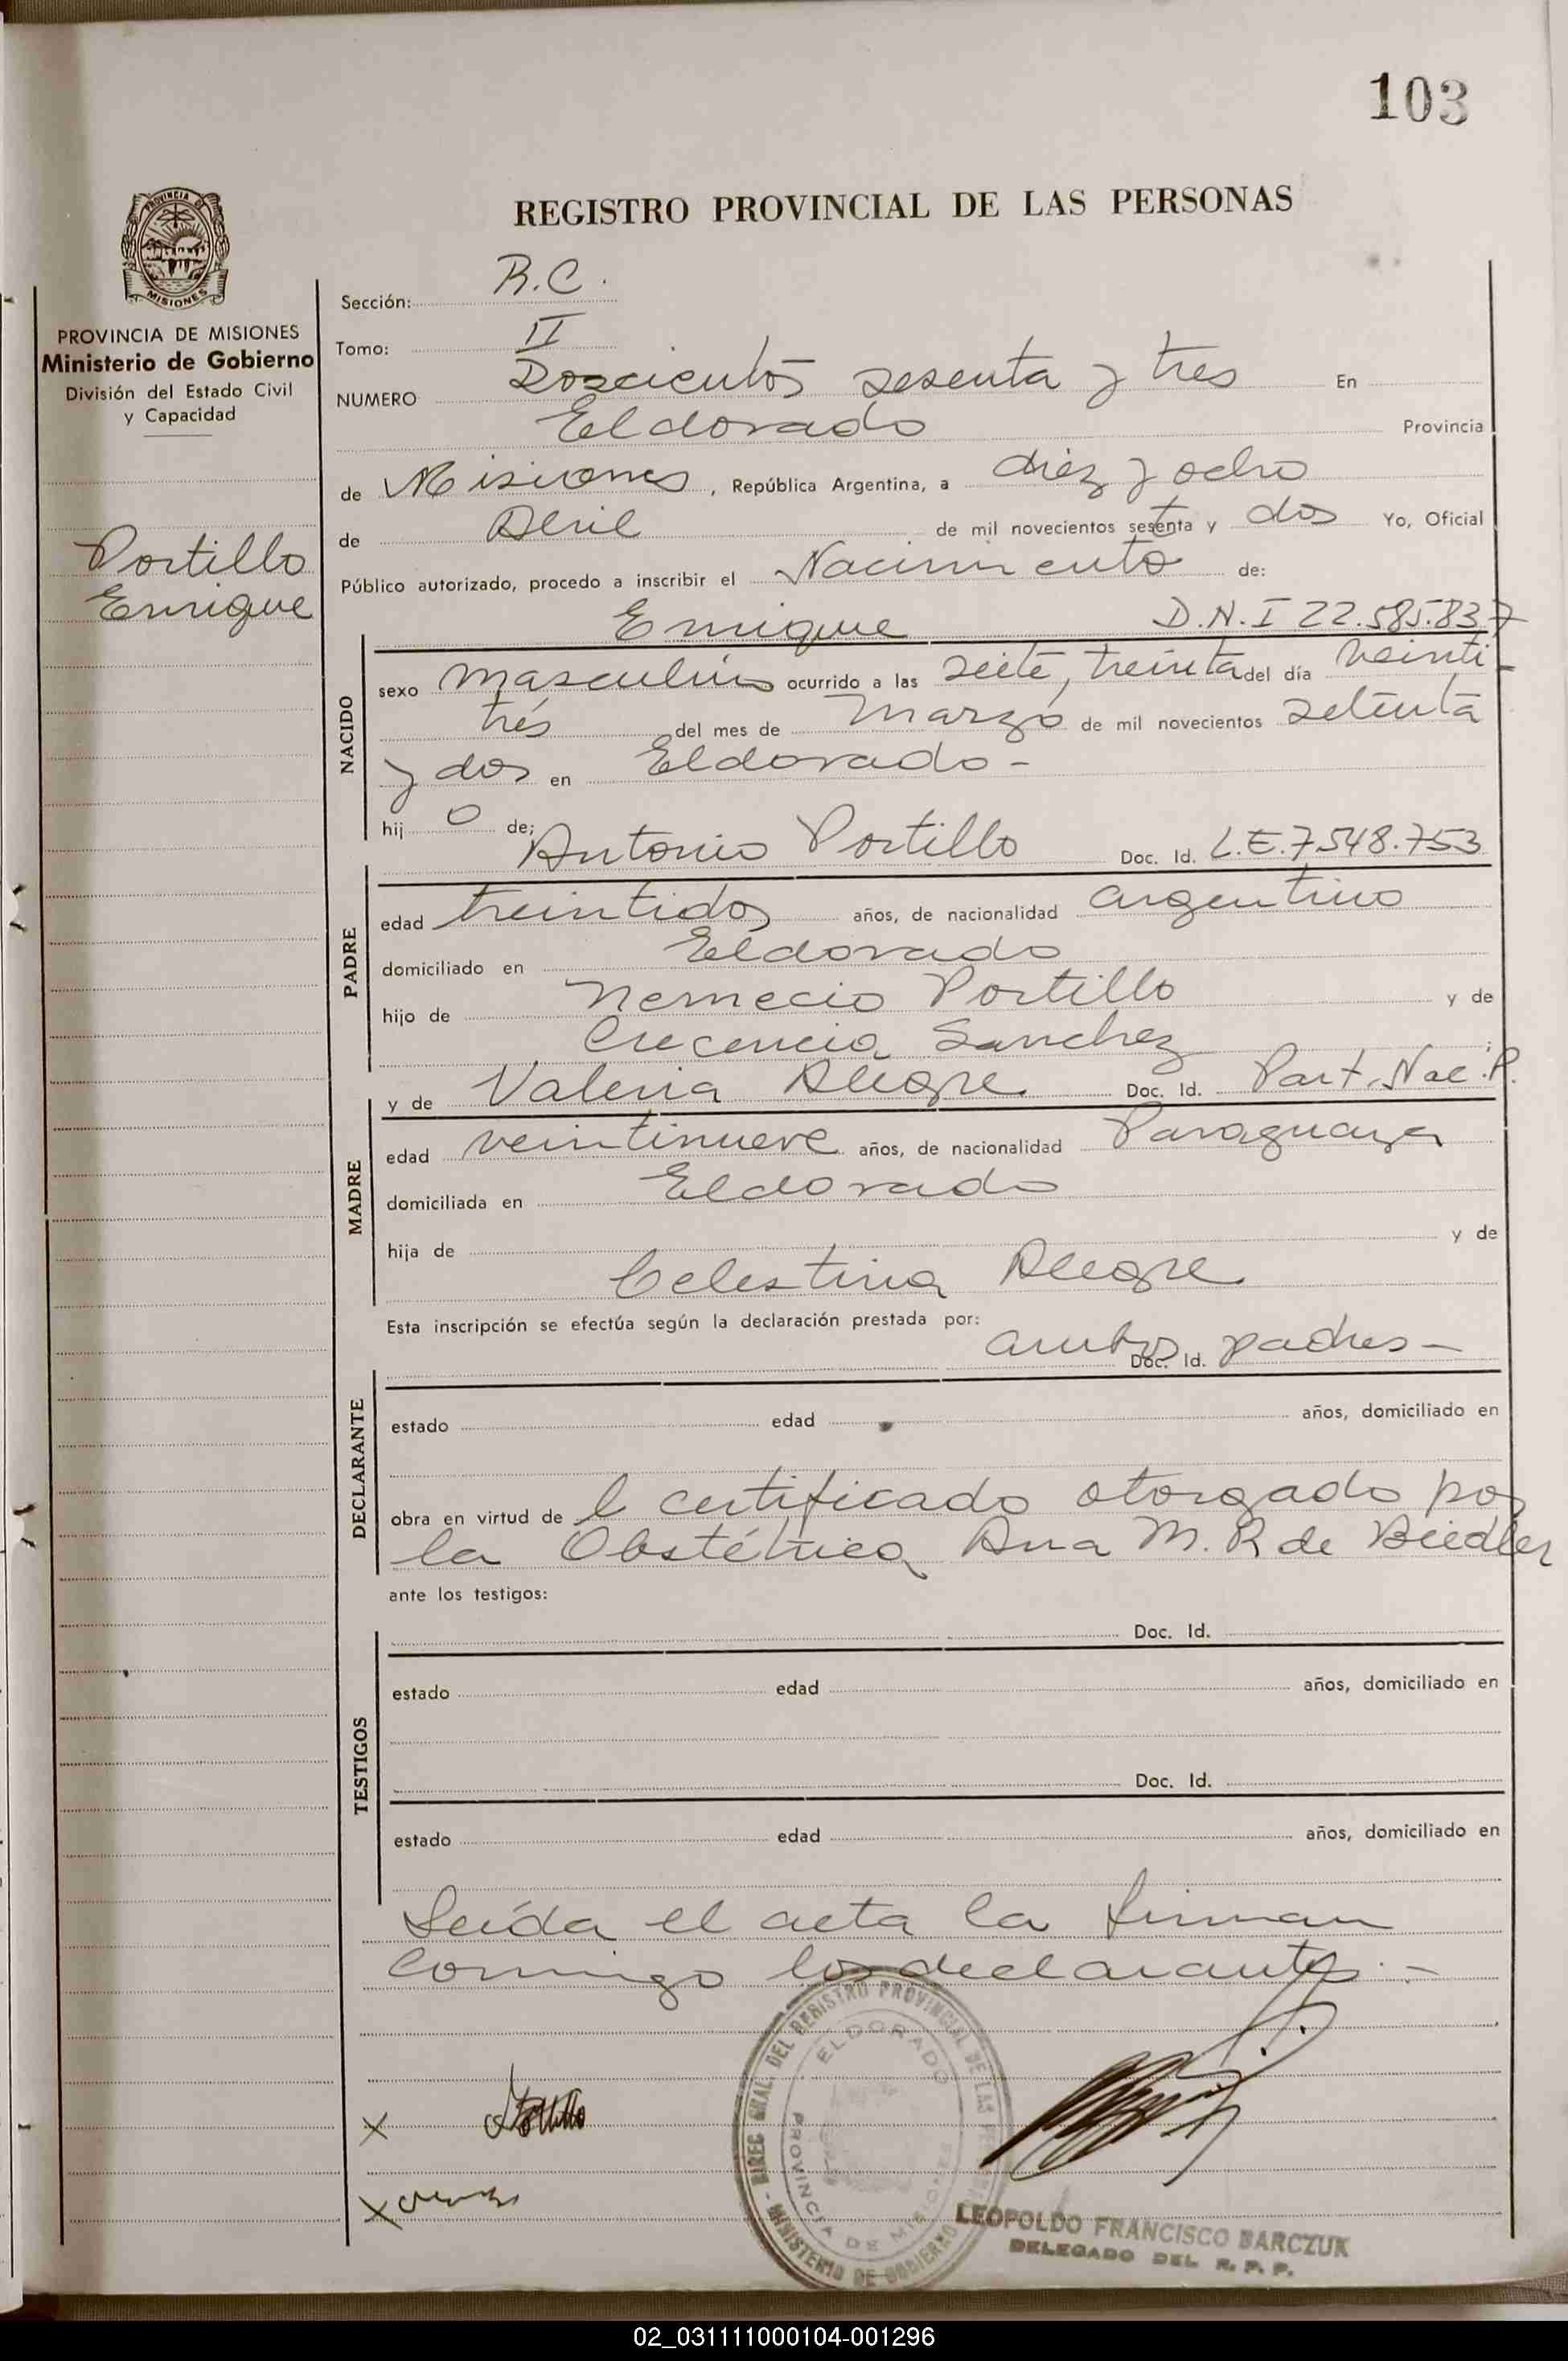 103
PROVINCIA DE
MISIONES
PROVINCIA DE MISIONES
Ministerio de Gobierno
División del Estado Civil
y Capacidad
Portillo
Enrique
REGISTRO PROVINCIAL DE LAS PERSONAS
Sección: R.C.
Tomo: II
NUMERO Doscientos sesenta y tres En
Eldorado Provincia
de Misiones, República Argentina, a diez y ocho
de Abril de mil novecientos sesenta y dos Yo, Oficial
Público autorizado, procedo a inscribir el Nacimiento de:
Enrique D.N.I 22.585.837
NACIDO
sexo masculino ocurrido a las siete, treinta del día veinti-
trés del mes de marzo de mil novecientos setenta
y dos en Eldorado-
hij o de; Antonio Portillo Doc. Id. L.E.7.548.753
PADRE
edad treintidos años, de nacionalidad argentino
domiciliado en Eldorado
hijo de Nemecio Portillo y de
Crecencia Sanchez ;
y de Valeria Alegre Doc. Id. Part. Nac. P.
MADRE
edad veintinueve años, de nacionalidad Paraguaya
domiciliada en Eldorado
hija de y de
Celestina Alegre
Esta inscripción se efectúa según la declaración prestada por:
ambos padres- Doc. Id.
DECLARANTE
estado edad años, domiciliado en
obra en virtud de l certificado otorgado por
la Obstétrica Ana M. R de Biedler
ante los testigos:
Doc. Id.
TESTIGOS
estado edad años, domiciliado en
Doc. Id.
estado edad años, domiciliado en
Leída el acta la firman
Conmigo los declarantes.-
DIREC GRAL. DEL REGISTRO PROVINCIAL DE LAS PERSONAS - MINISTERIO DE GOBIERNO
ELDORADO
PROVINCIA DE MISIONES
X Portillo
X
LEOPOLDO FRANCISCO BARCZUK
DELEGADO DEL R. P. P.
02_031111000104-001296